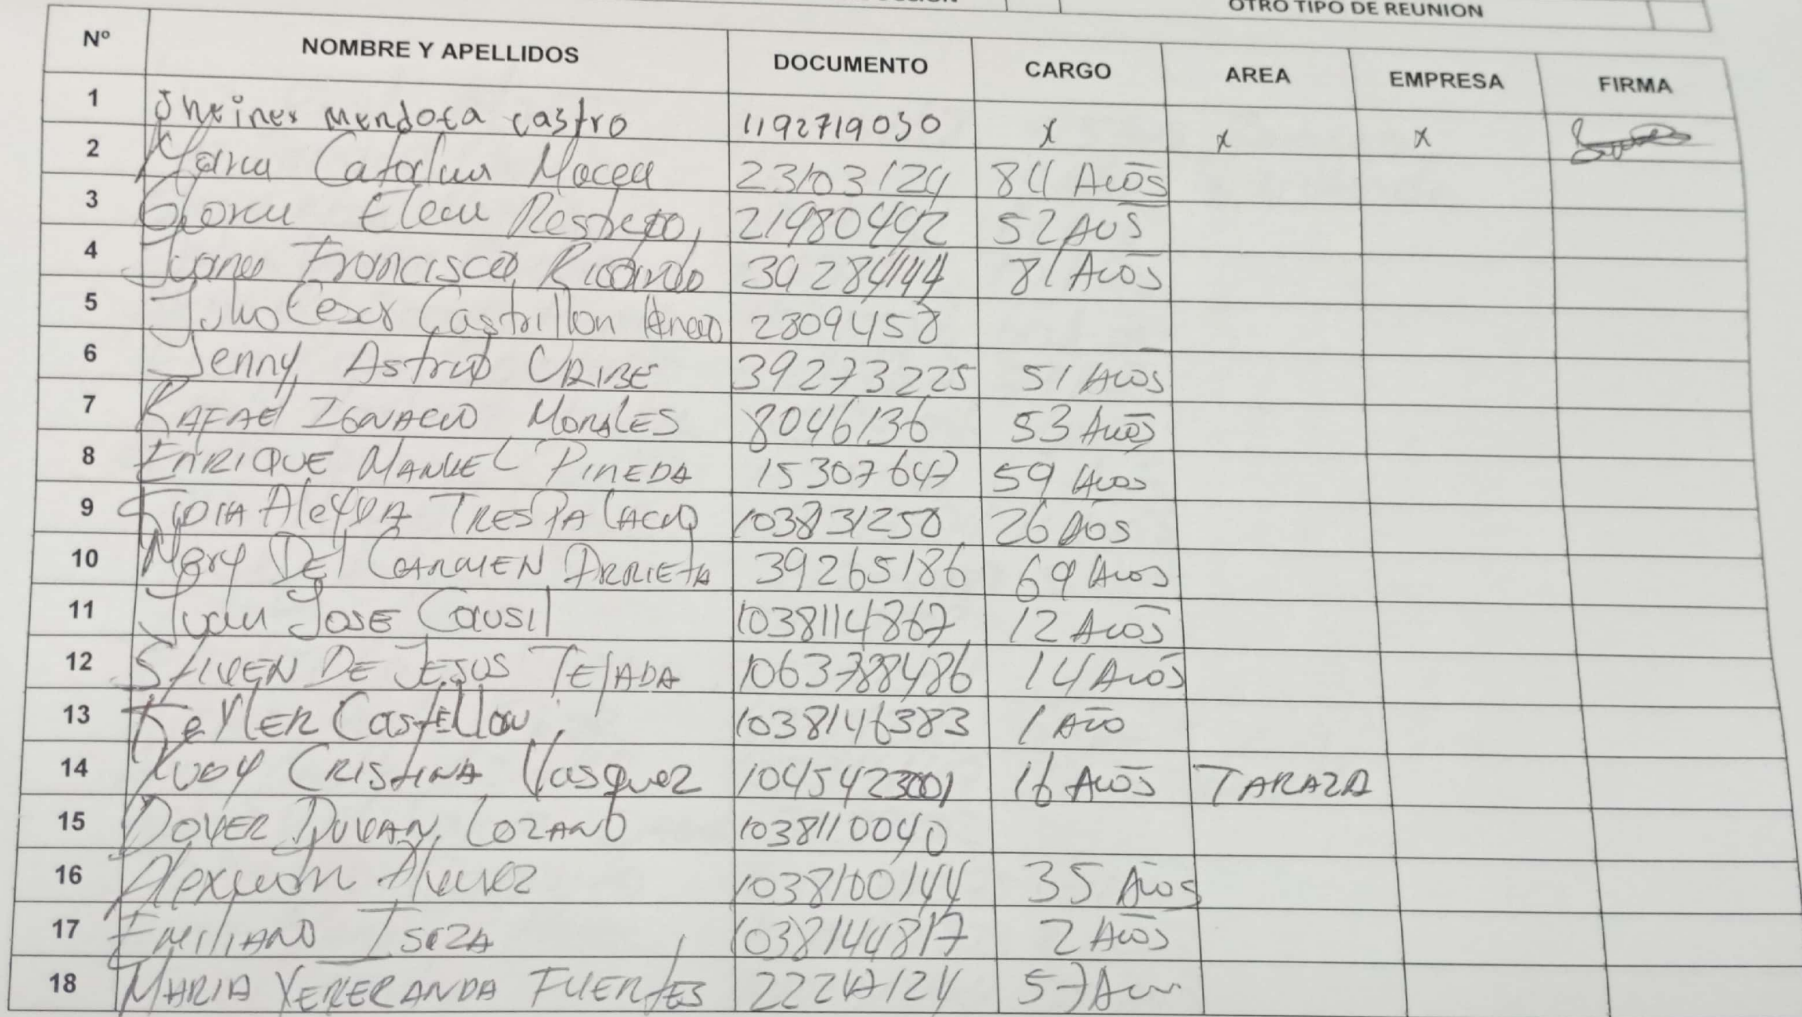 OTRO TIPO DE REUNION
Nº NOMBRE Y APELLIDOS DOCUMENTO CARGO AREA EMPRESA FIRMA
1 Jheiner Mendoza Castro 1192719030 x x x
2 Maria Catalina Macea 23103124 84 Años
3 Gloria Elena Restrepo, 21980492 52 Años
4 Juana Francisca Ricardo 39284144 81 Años
5 Julio Cesar Castrillon 2809458
6 Jenny Astrid URIBE 39273225 51 Años
7 RAFAEl IGNACIO MORALES 8046136 53 Años
8 ENRIQUE MANUEL PINEDA 15307647 59 Años
9 AleYDA TRESPALACIO 103831250 26 Años
10 Nery DEl CARMEN ARRIETA 39265186 69 Años
11 Juan JOSE Causil 1038114867 12 Años
12 STIVEN DE JESUS TEJADA 1063788486 14 Años
13 KeYLER Castellon 1038146383 1 Año
14 YUDY CRISTINA Vasquez 1045423001 16 Años TARAZA
15 DOVER DUVAN LOZANO 1038110040
16 Alvarez 1038100144 35 Años
17 EMILIANO ISAZA 1038144817 2 Años
18 MARIA YERERANDA FUERTES 57 Años